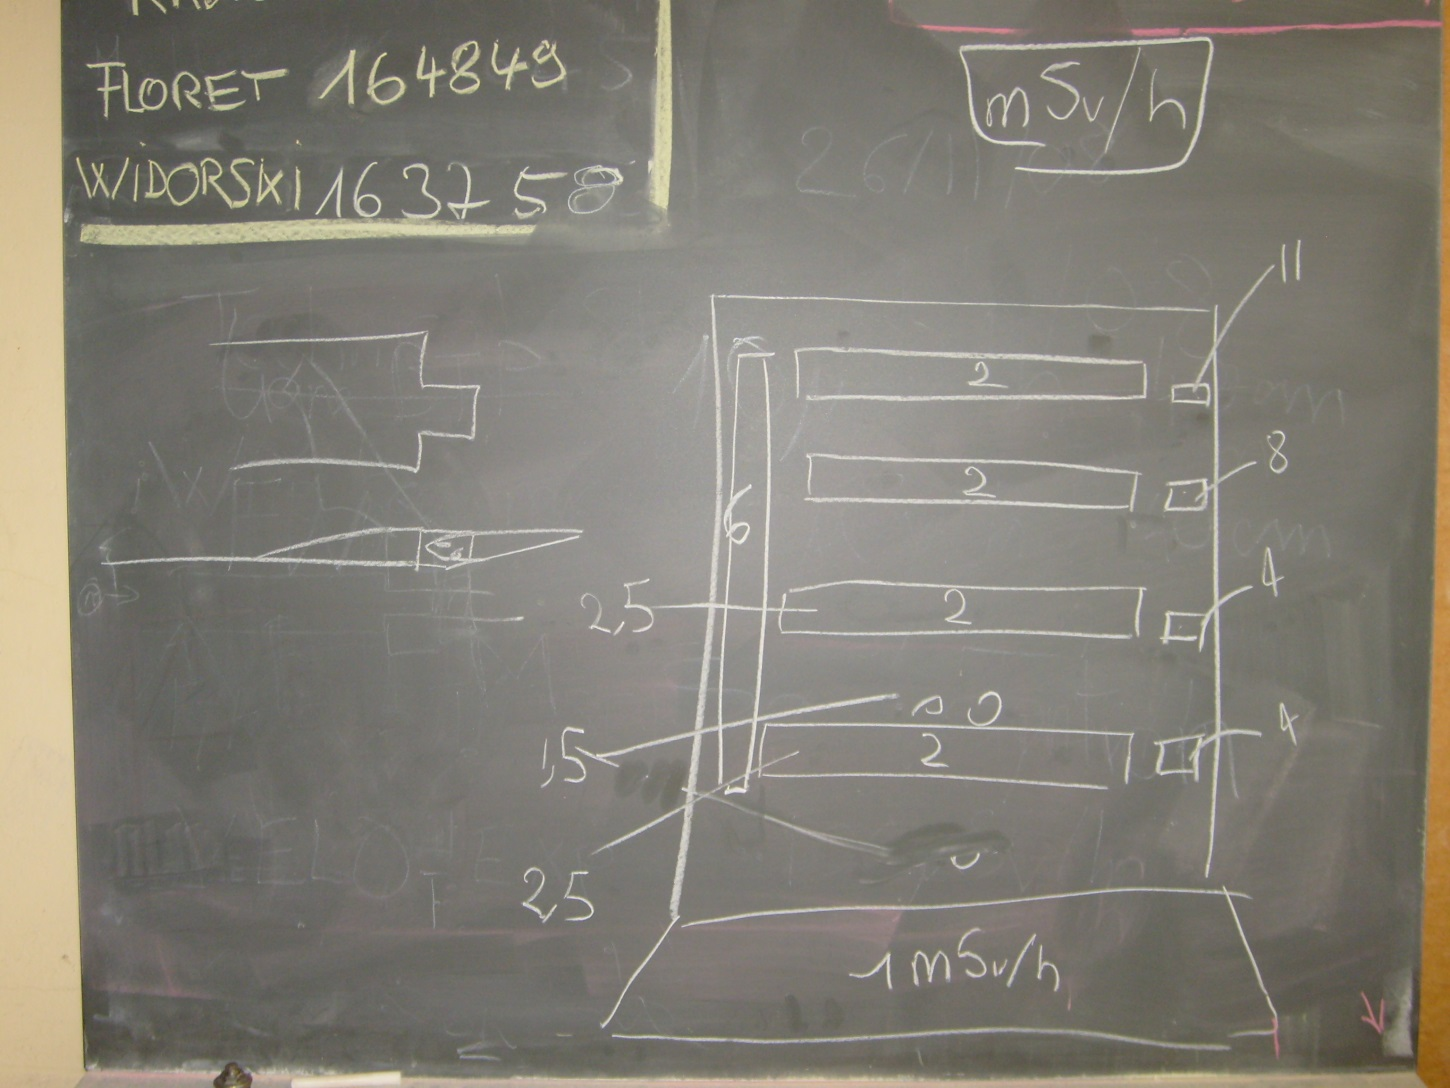 FLORET 164849
WiDORSKi 163758
mSv/h
11
2
8
2
6
4
2,5
2
0
4
1,5
2
2,5
1mSv/h